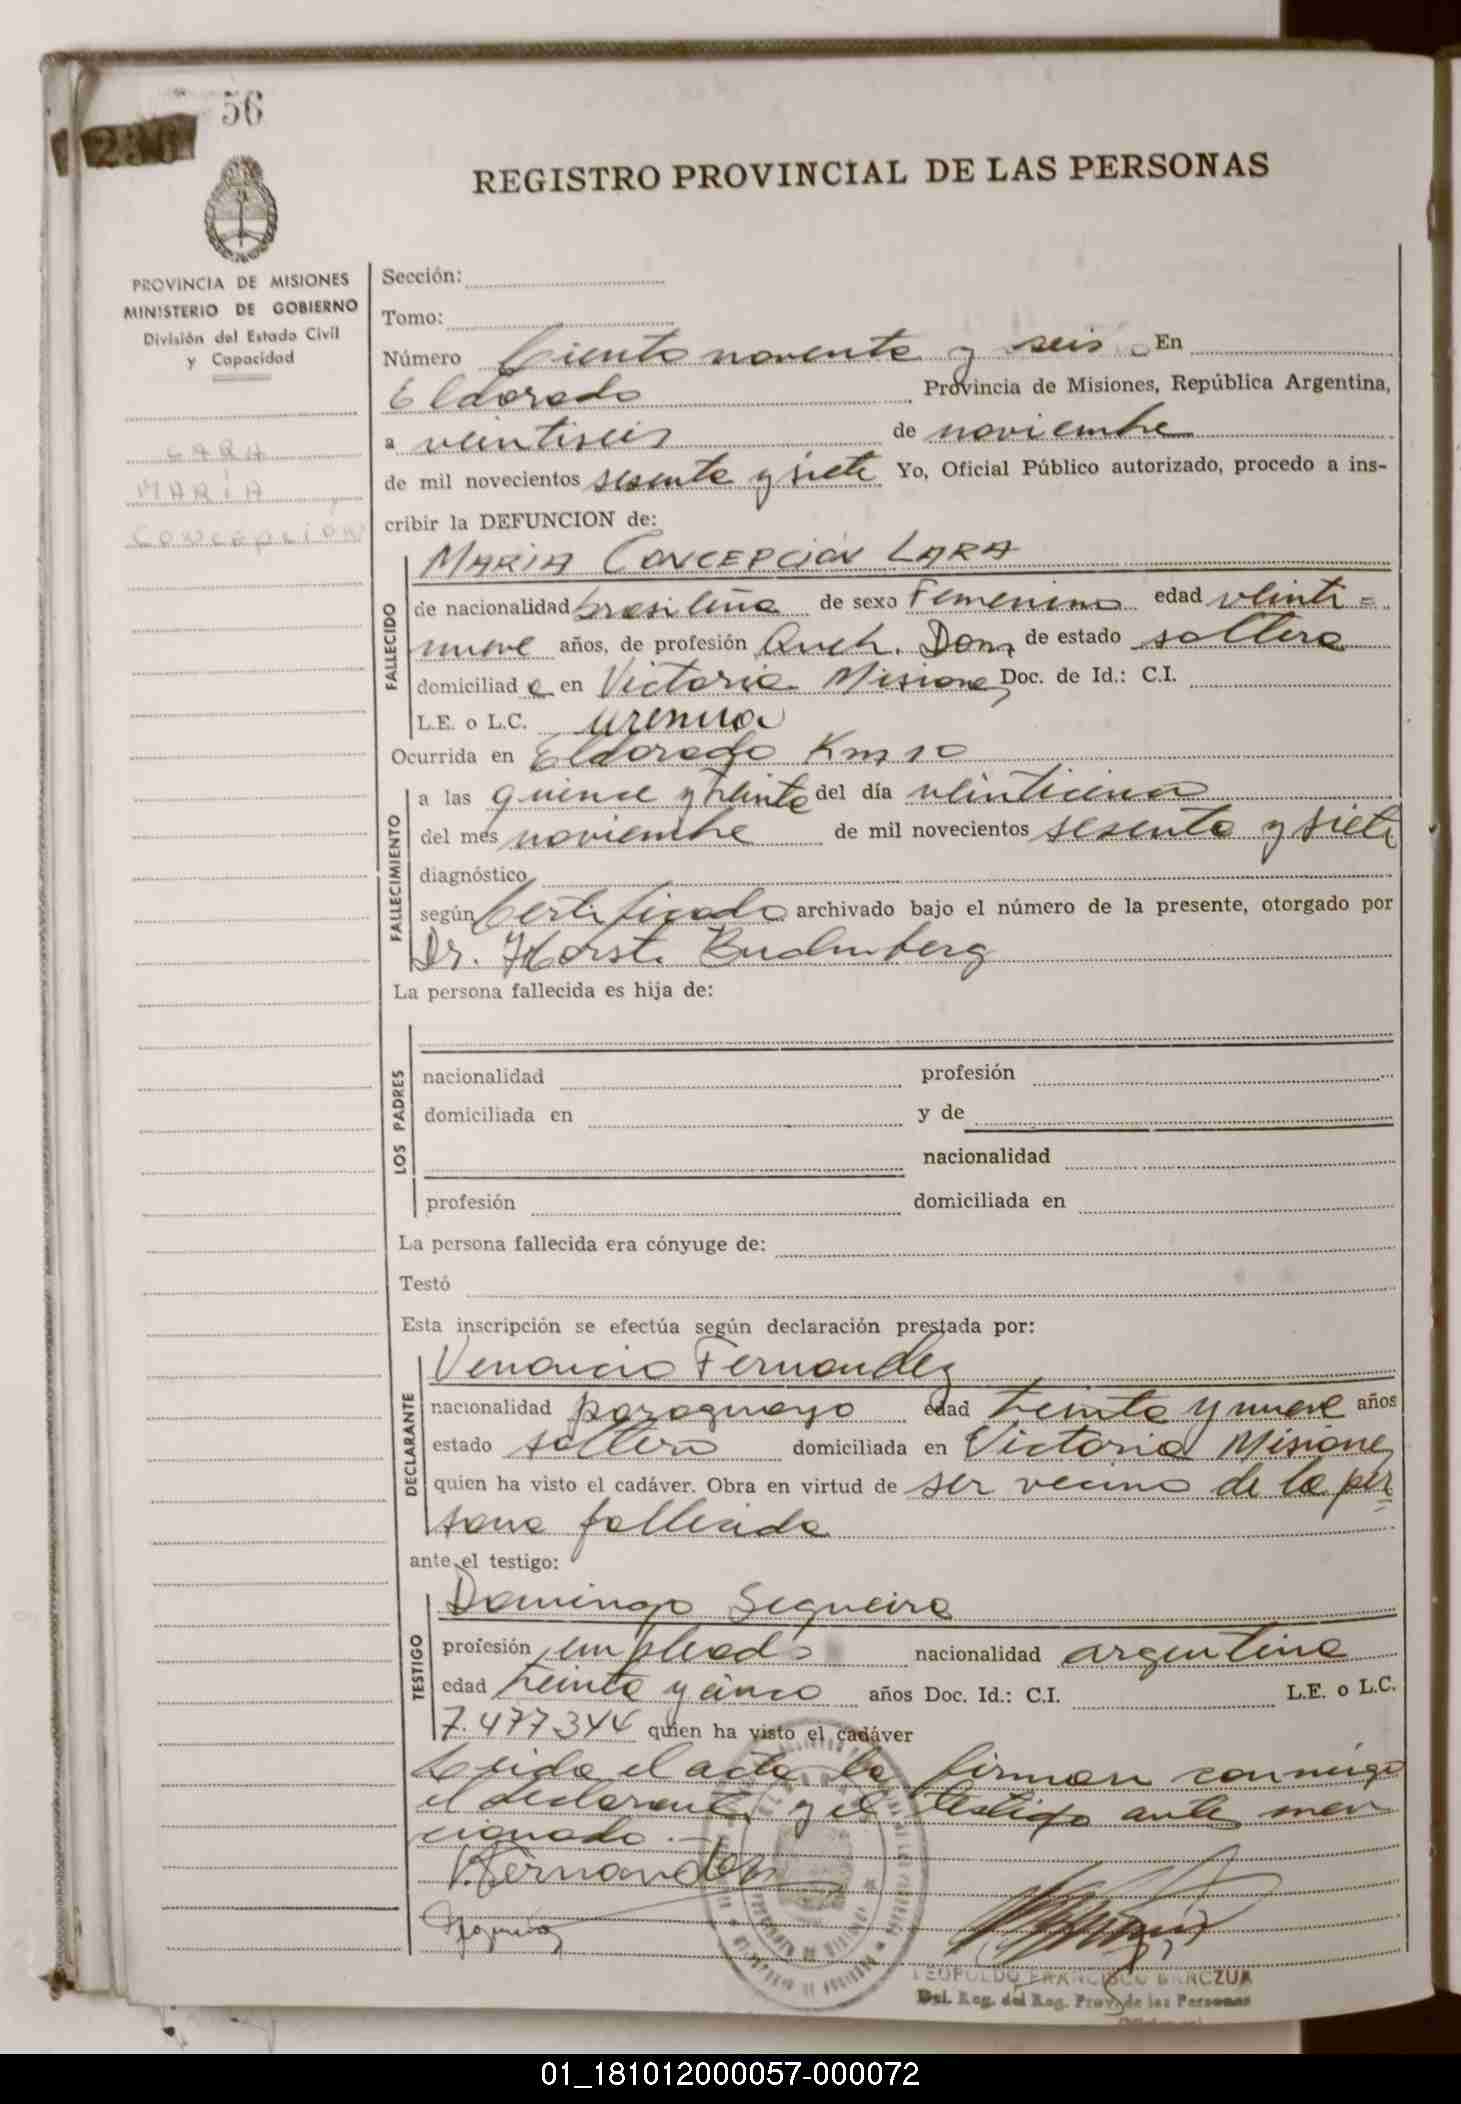 56
REGISTRO PROVINCIAL DE LAS PERSONAS
PROVINCIA DE MISIONES
MINISTERIO DE GOBIERNO
División del Estado Civil
y Capacidad
LARA
MARÍA
CONCEPCION
Sección:
Tomo:
Número Ciento noventa y seis En
Eldorado Provincia de Misiones, República Argentina,
a veintiseis de noviembre
de mil novecientos sesenta y siete Yo, Oficial Público autorizado, procedo a ins-
cribir la DEFUNCION de:
MARIA CONCEPCIÓN LARA
FALLECIDO
de nacionalidad brasileña de sexo Femenino edad veinti=
nueve años, de profesión Queh. Dom, de estado soltera
domiciliad a en Victoria Misiones Doc. de Id.: C.I.
L.E. o L.C.
Ocurrida en Eldorado Km 10
FALLECIMIENTO
a las quince y treinta del día veinticinco
del mes noviembre de mil novecientos sesenta y siete
diagnóstico
según Certificado archivado bajo el número de la presente, otorgado por
Dr. Horst
La persona fallecida es hija de:
LOS PADRES
nacionalidad profesión
domiciliada en y de
nacionalidad
profesión domiciliada en
La persona fallecida era cónyuge de:
Testó
Esta inscripción se efectúa según declaración prestada por:
DECLARANTE
Venancio Fernandez
nacionalidad paraguayo edad treinta y nueve años
estado soltero domiciliada en Victoria Misiones
quien ha visto el cadáver. Obra en virtud de ser vecino de la per=
sona fallecida
ante el testigo:
TESTIGO
Domingo Segueira
profesión empleado nacionalidad argentina
edad treinta y cinco años Doc. Id.: C.I. L.E. o L.C.
7.477.344 quien ha visto el cadáver
Leida el acta la firman conmigo
el declarante y el testigo ante men
cionado.-
V. Fernandez
LEOPOLDO FRANCISCO
Del. Reg. del Reg. Prov. de las Personas
01_181012000057-000072